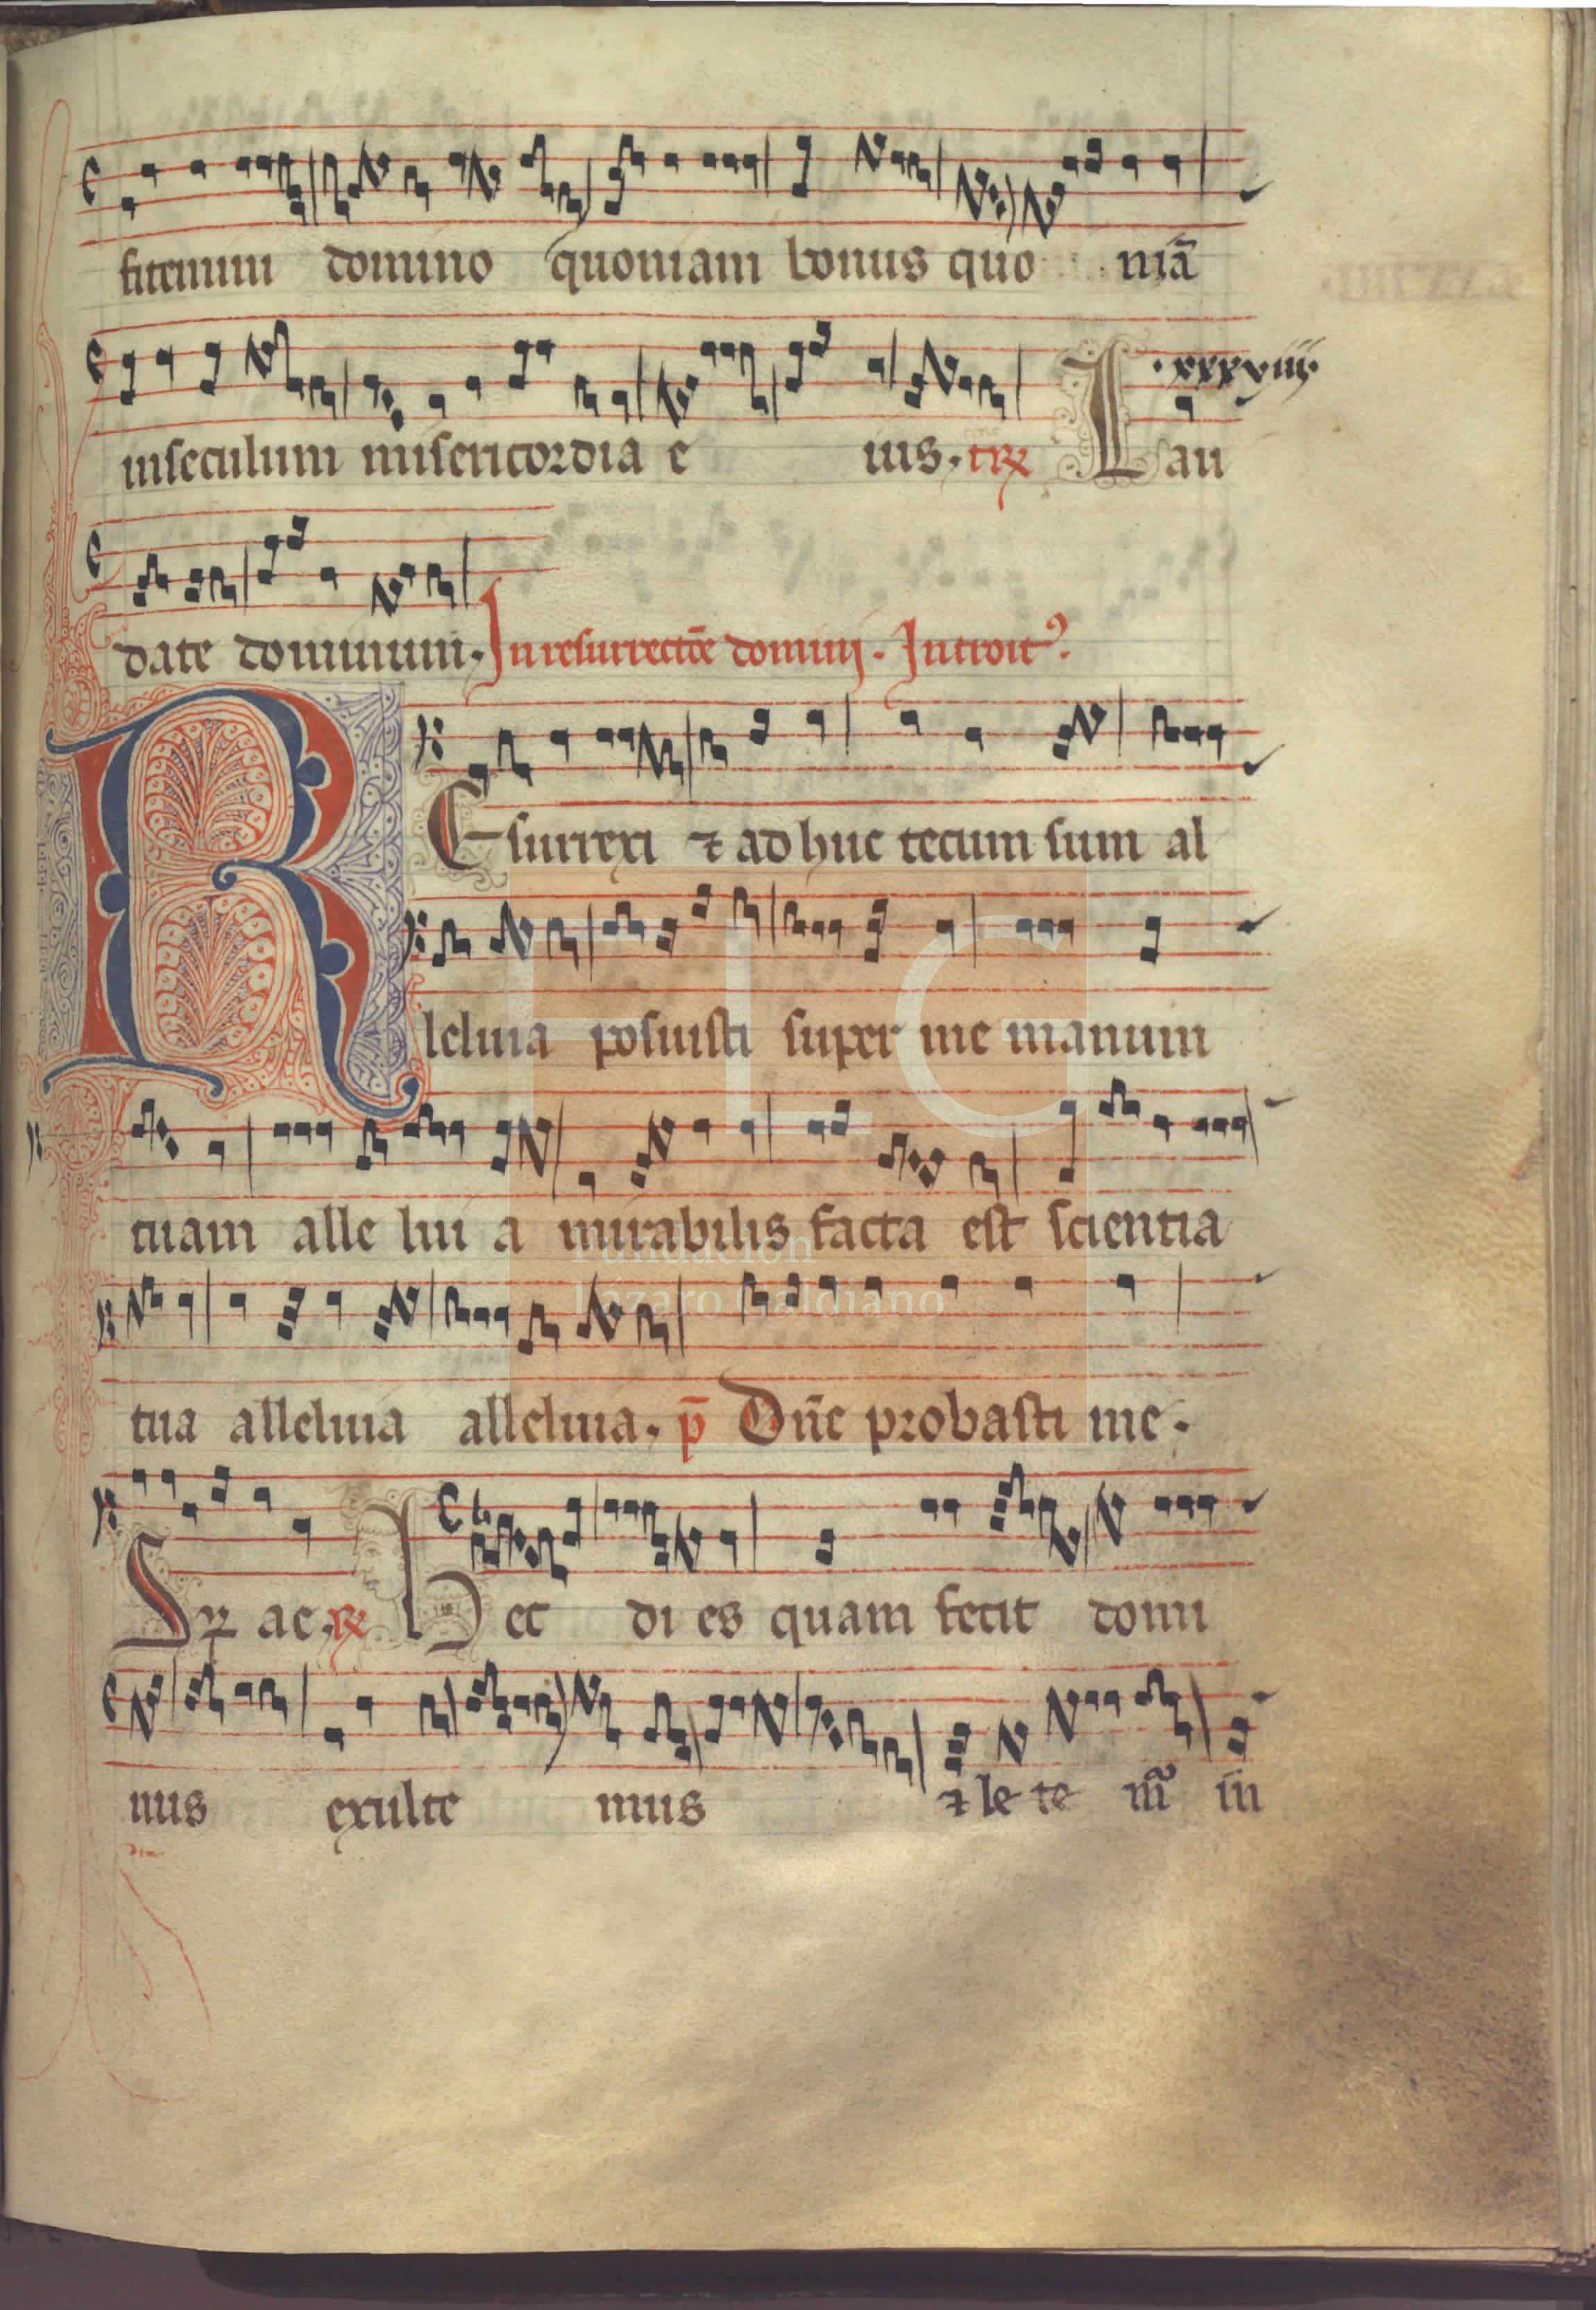 fitemini domino quoniam bonus quo niã
·xxxviiij·
inseculum misericordia e ius. tr̃ Lau
date dominum. In resurrectiõe domini. Introit⁹.
Resurrexi ⁊ adhuc tecum sum al
leluia posuisti super me manum
tuam alle lui a mirabilis facta est scientia
Fundación
Lázaro Galdiano
tua alleluia alleluia. p̃ Dñe probasti me.
ae. Hec di es quam fecit domi
nus exulte mus ⁊ le te in
FLG